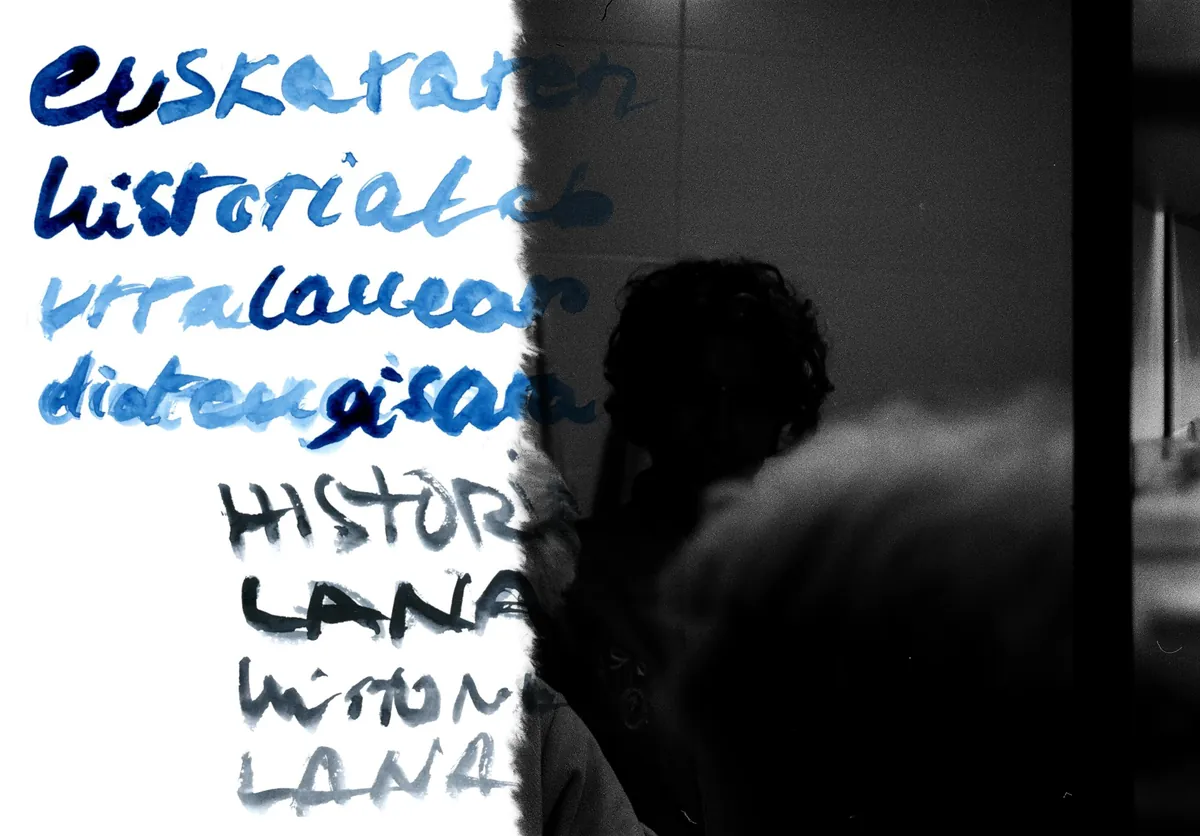 euskararen
historialab
urra laucar
dioten gisara
HISTORI
LANA
histori
LANA